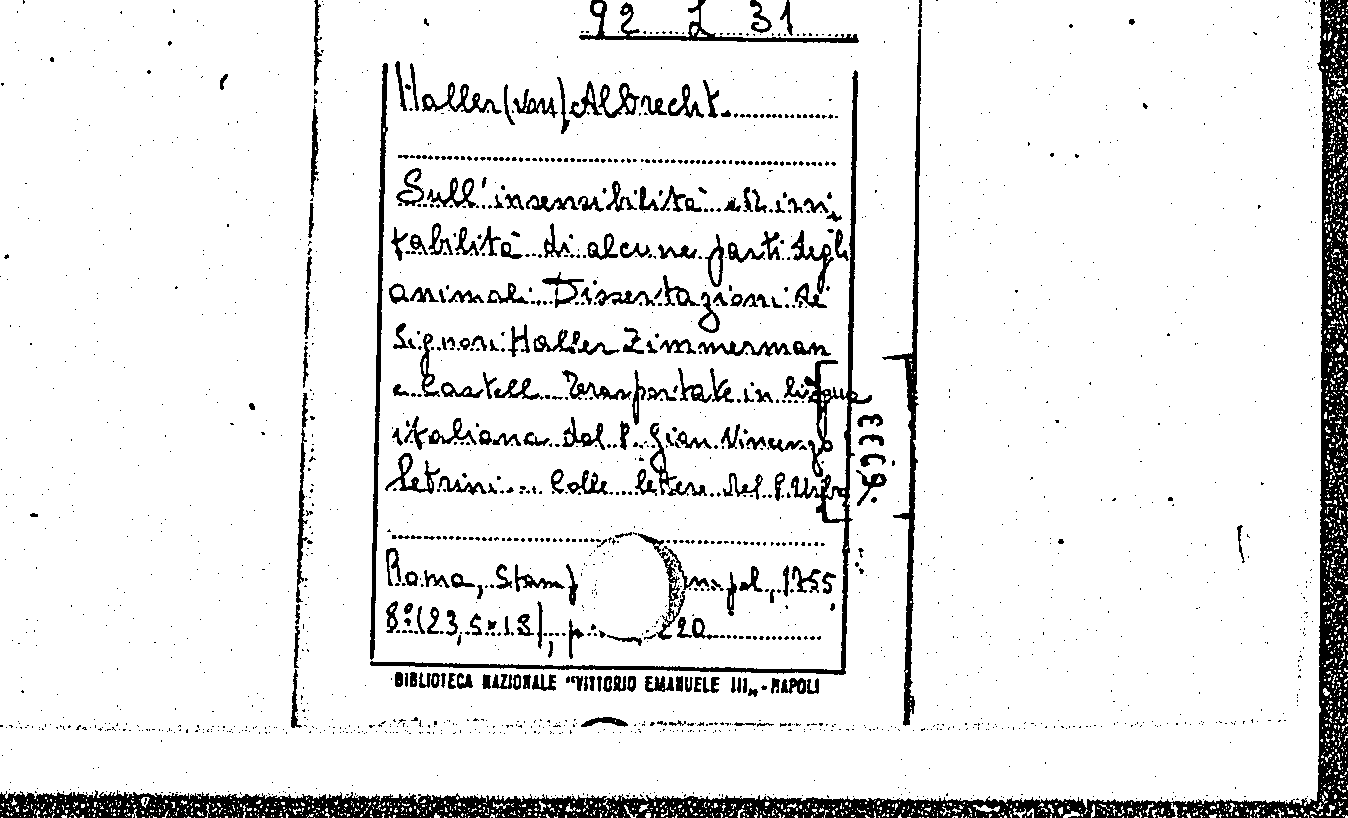 92 L 31
Haller (von), Albrecht.
Sull'insensibilità ed irri,
tabilità di alcune parti degli
animali. Dissertazioni dei
Signori Haller Zimmerman
e Castell. Trasportate in lingua
italiana dal P. Gian Vincenzo
Petrini... Colle lettere del P. Urb.
Roma, Stam , 1755,
8º (23,5×18), p 220
BIBLIOTECA NAZIONALE "VITTORIO EMANUELE III„ - NAPOLI